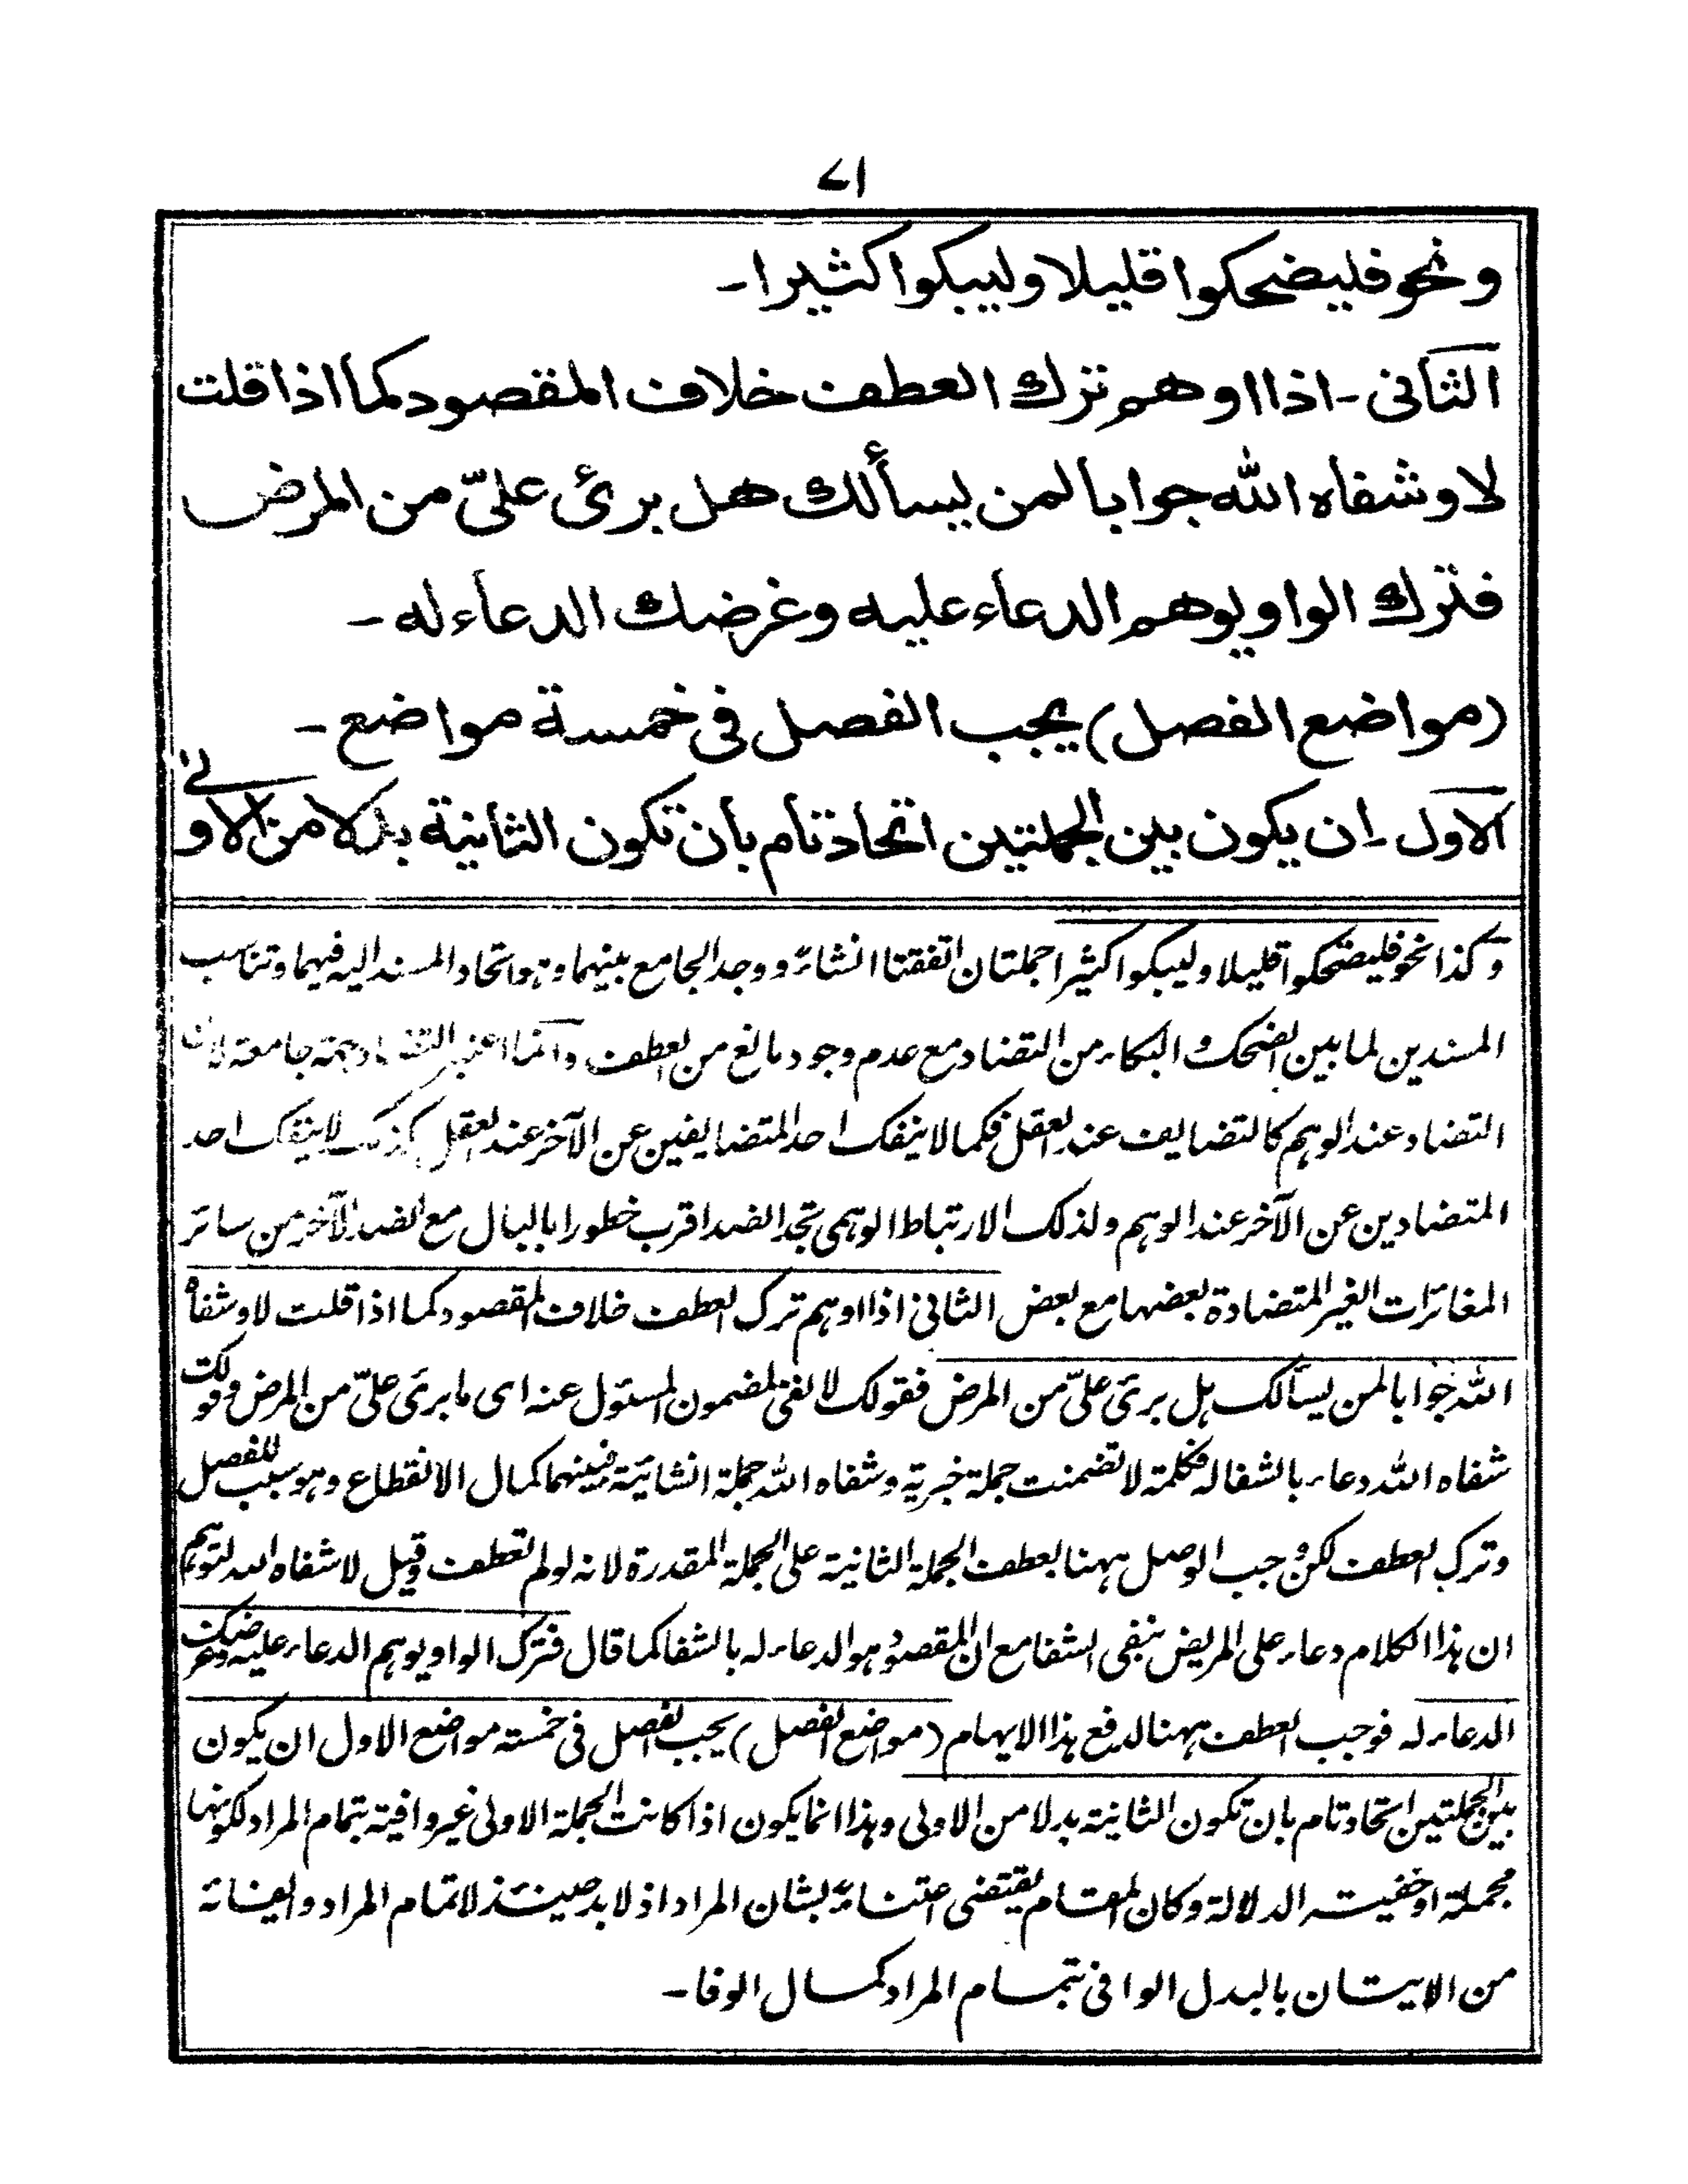 ٧١
ونحو فليضحكوا قليلا وليبكوا كثيرا-
الثانى- اذا اوهم ترك العطف خلاف المقصود كما اذا قلت
لا وشفاه الله جوابا لمن يسألك هل برئ علىّ من المرض
فترك الواو يوهم الدعاء عليه وغرضك الدعاء له-
(مواضع الفصل) يجب الفصل فى خمسة مواضع-
الاول- ان يكون بين الجملتين اتحاد تام بان تكون الثانية بدلا من الاولى
وكذا نحو فليضحكوا قليلا وليبكوا كثيرا جملتان اتفقتا انشاءً ووجد الجامع بينهما وهو اتحاد المسند اليه فيهما وتناسب
المسندين لما بين الضحك والبكاء من التضاد مع عدم وجود مانع من العطف وانما اعتبر التضاد جهة جامعة لان
التضاد عند الوهم كالتضايف عند العقل فكما لا ينفك احد المتضايفين عن الآخر عند العقل كذلك لا ينفك احد
المتضادين عن الآخر عند الوهم ولذلك الارتباط الوهمى تجد الضد اقرب خطورا بالبال مع الضد الآخر من سائر
المغائرات الغير المتضادة بعضها مع بعض الثانى اذا اوهم ترك العطف خلاف المقصود كما اذا قلت لا وشفاه
الله جوابا لمن يسألك هل برئ علىّ من المرض فقولك لا نفى لمضمون المسئول عنه اى ما برئ علىّ من المرض وقولك
شفاه الله دعاء بالشفا له فكلمة لا تضمنت جملة خبرية وشفاه الله جملة انشائية فبينهما كمال الانقطاع وهو سبب للفصل
وترك العطف لكن وجب الوصل ههنا بعطف الجملة الثانية على الجملة المقدرة لانه لو لم تعطف وقيل لا شفاه الله لتوهم
ان هذا الكلام دعاء على المريض بنفى الشفا مع ان المقصود هو الدعاء له بالشفا كما قال فترك الواو يوهم الدعاء عليه وغرضك
الدعاء له فوجب العطف ههنا لدفع هذا الايهام (مواضع الفصل) يجب الفصل فى خمسة مواضع الاول ان يكون
بين الجملتين اتحاد تام بان تكون الثانية بدلا من الاولى وهذا انما يكون اذا كانت الجملة الاولى غير وافية بتمام المراد لكونها
مجملة او خفية الدلالة وكان المقام يقتضى اعتناءً بشان المراد اذ لا بد حينئذ لاتمام المراد وايفائه
من الاتيان بالبدل الوافى بتمام المراد كمال الوفا-